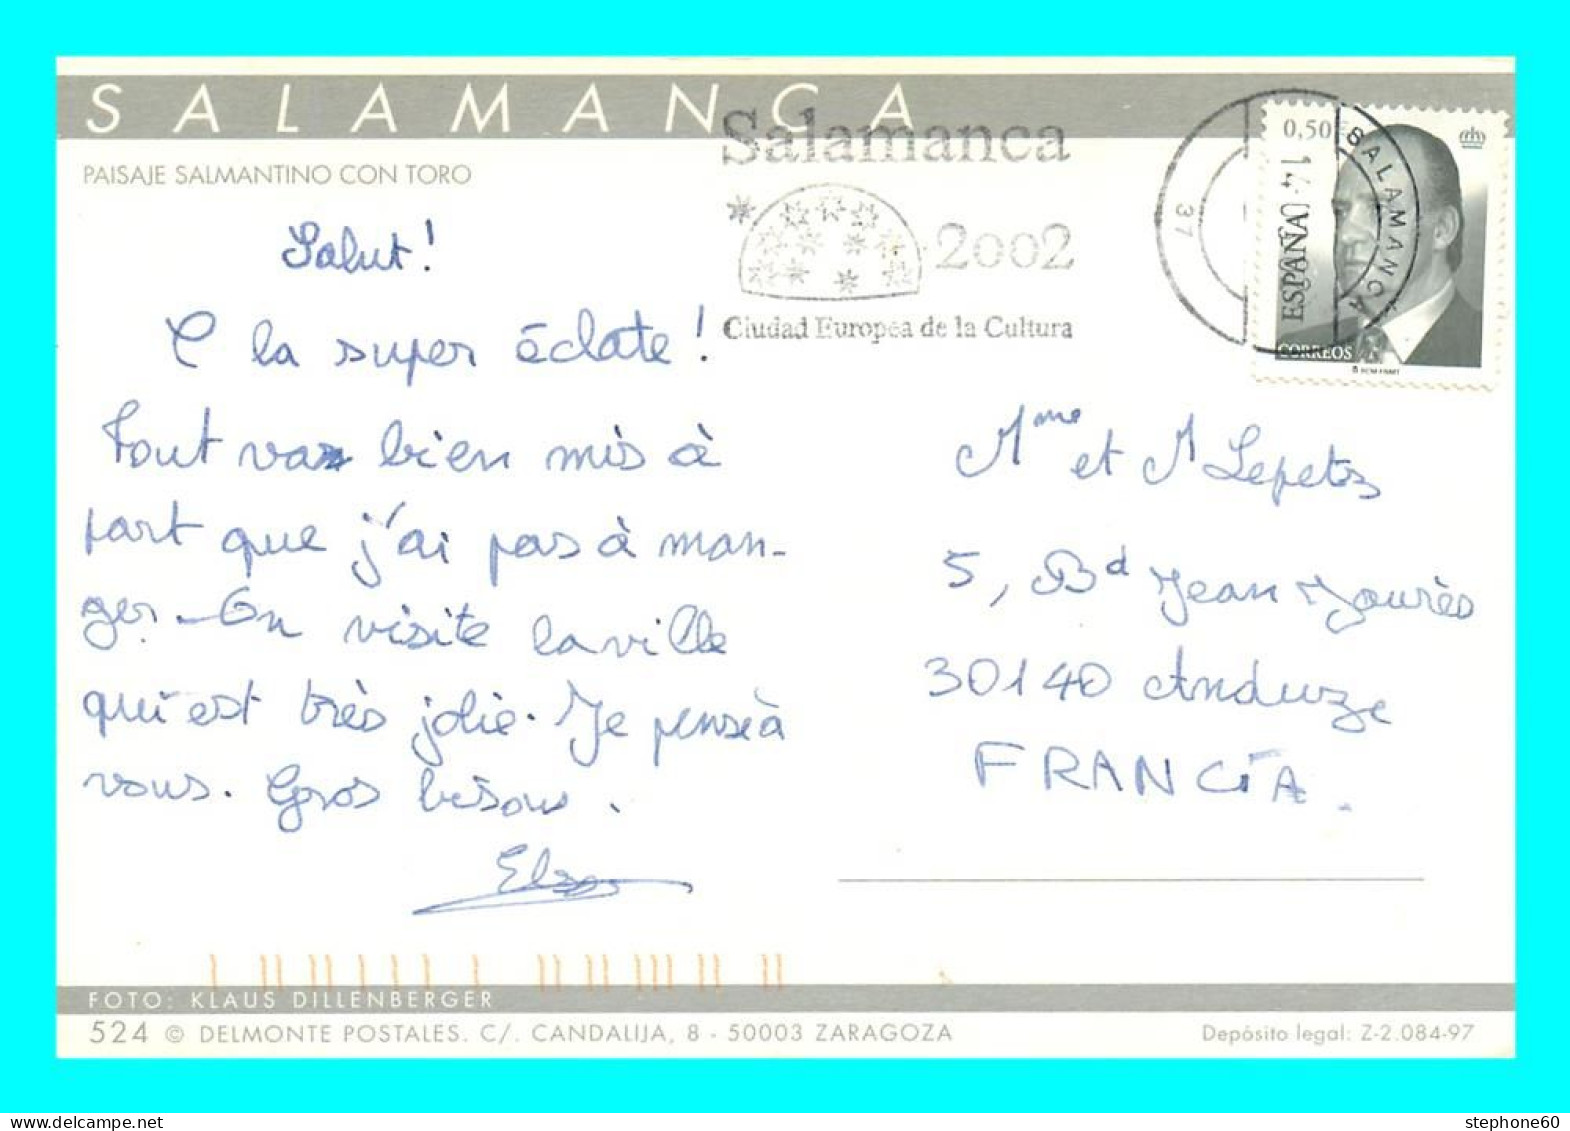 SALAMANCA
PAISAJE SALMANTINO CON TORO
Salamanca
2002
Ciudad Europea de la Cultura
0,50€
ESPAÑA
CORREOS
SALAMANCA
37
Salut!
C la super éclate!
Tout va bien mis à
part que j'ai pas à man-
ger. On visite la ville
qui est très jolie. Je pense à
vous. Gros bisous.
Mme et M Lepetz
5, Bd Jean Jaurès
30140 Anduze
FRANCIA.
FOTO: KLAUS DILLENBERGER
524 © DELMONTE POSTALES. C/. CANDALIJA, 8 - 50003 ZARAGOZA
Depósito legal: Z-2.084-97
stephone60